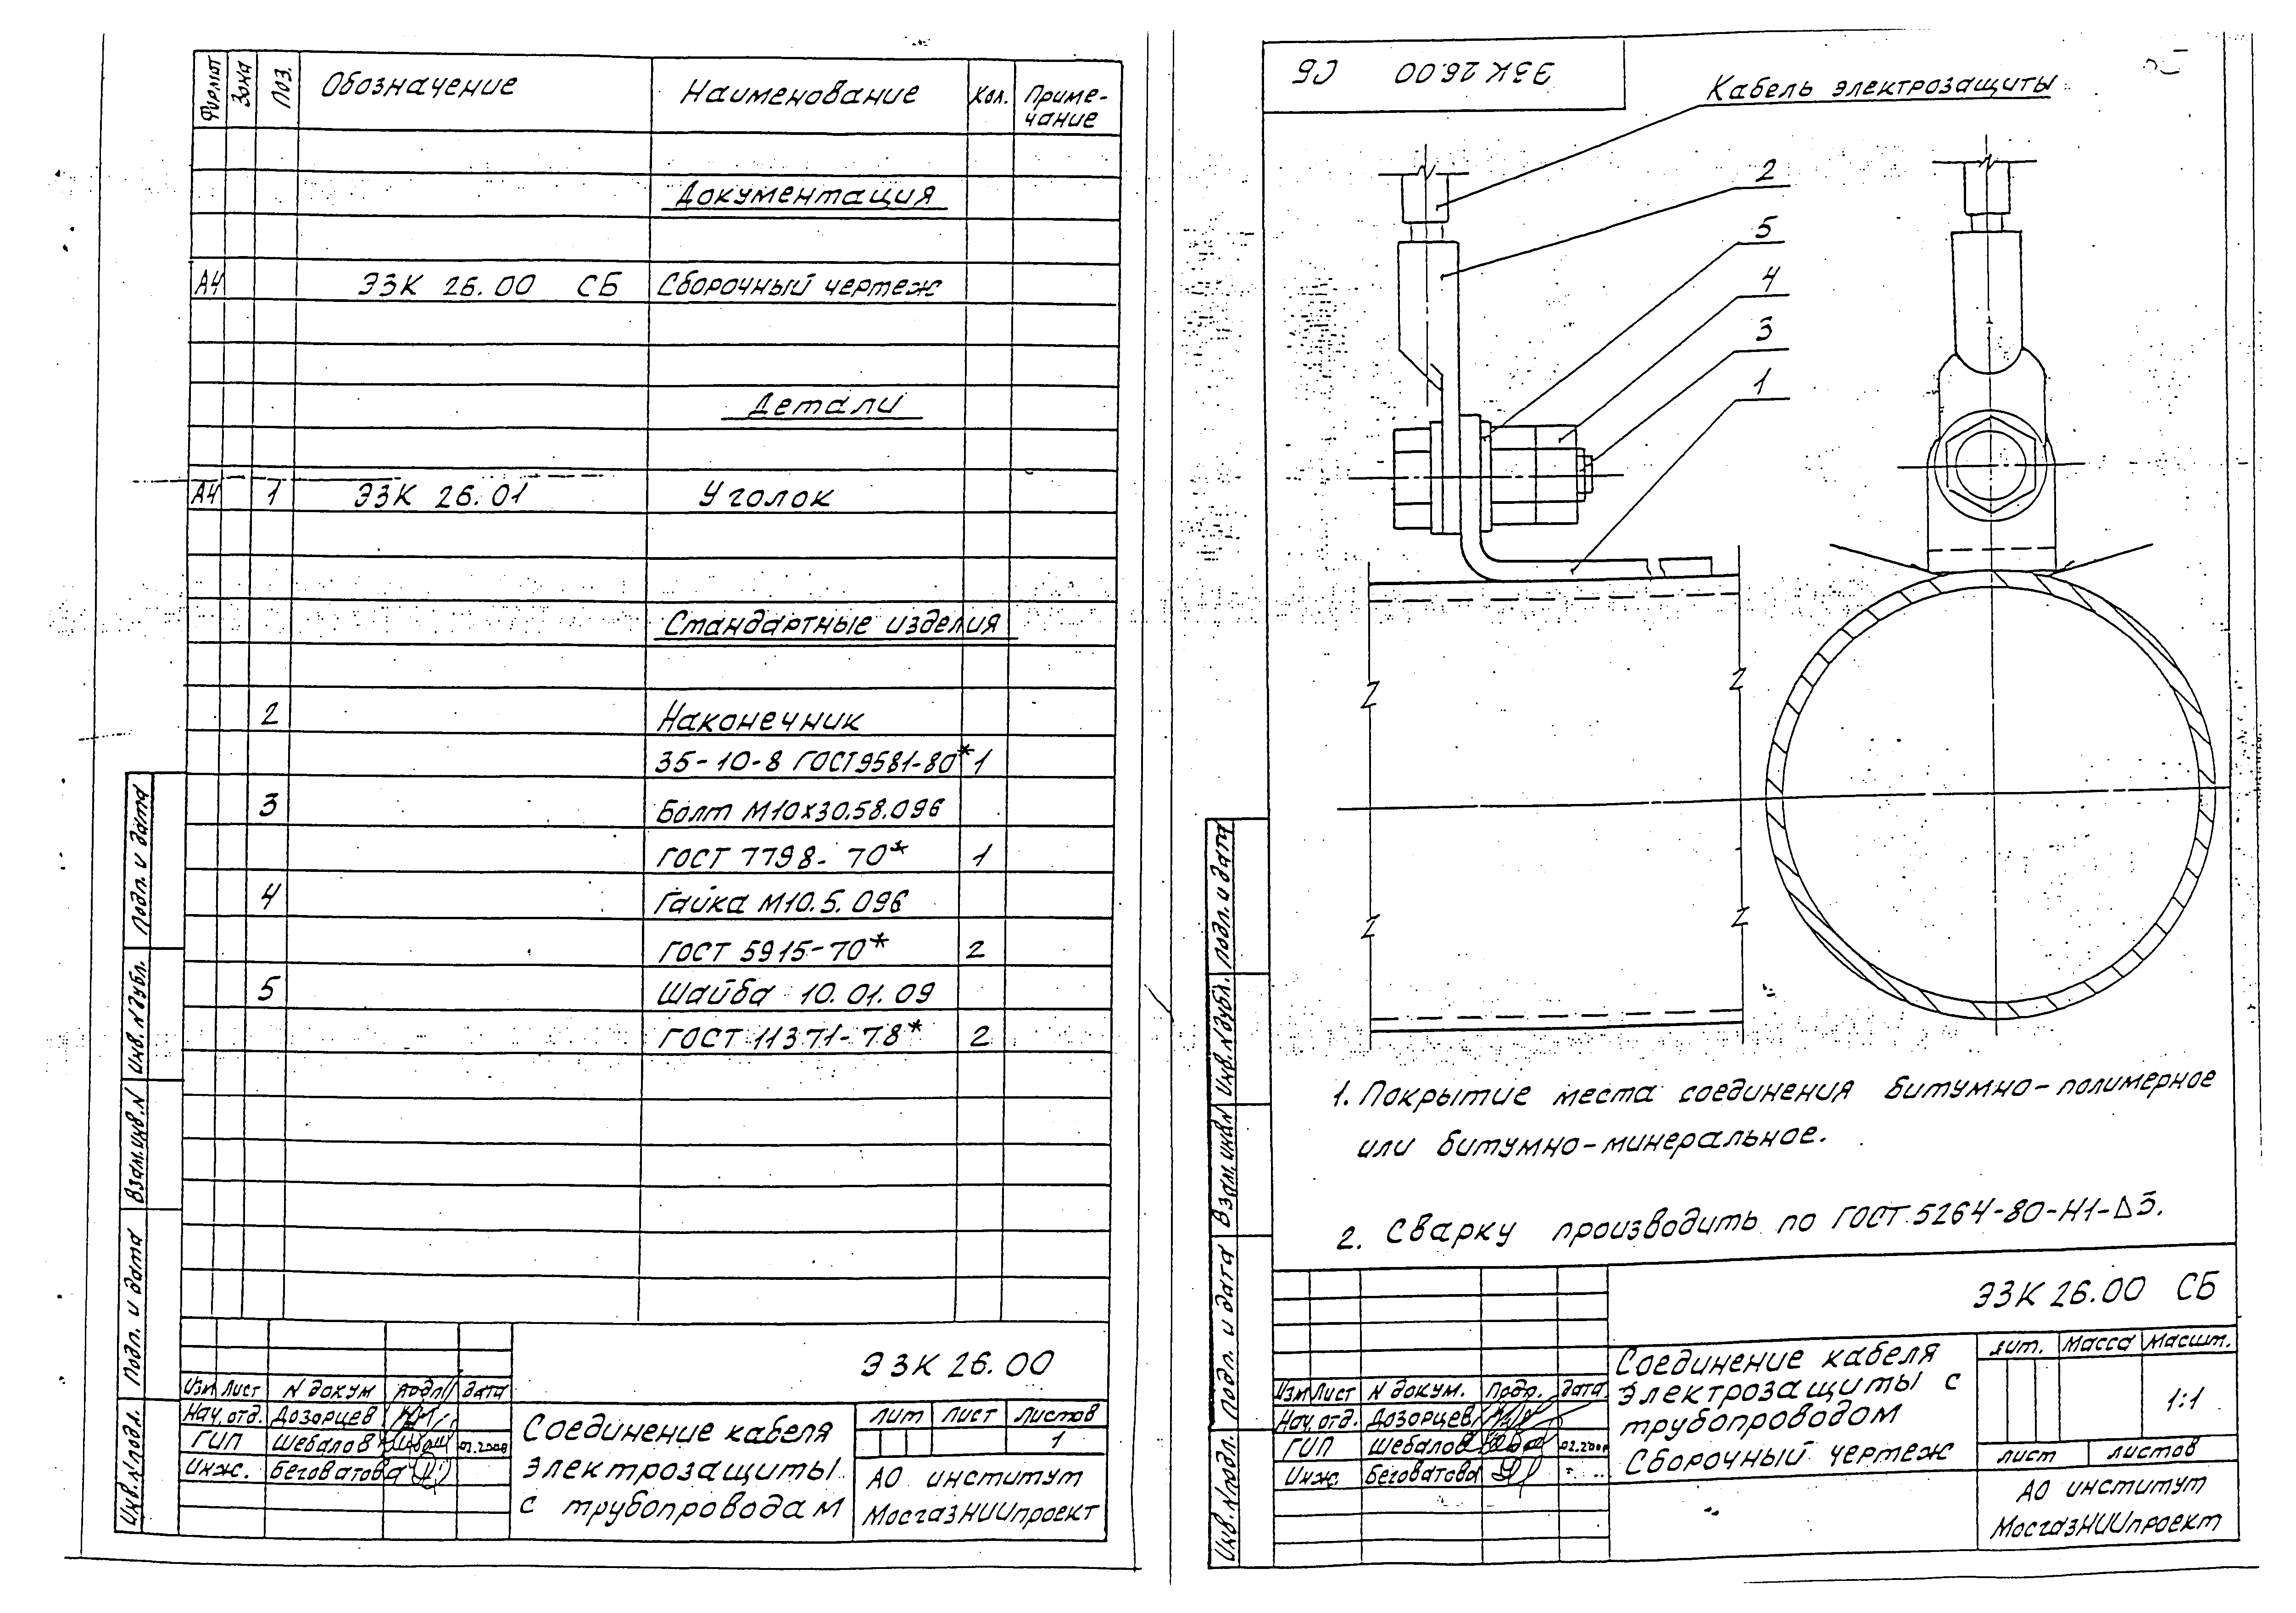 Формат Зона Поз. Обозначение Наименование Кол. Приме-
чание
Документация
А4 ЭЗК 26.00 СБ Сборочный чертеж
Детали
А4 1 ЭЗК 26.01 Уголок
Стандартные изделия
2 Наконечник
35-10-8 ГОСТ 9581-80* 1
3 Болт М10х30.58.096
ГОСТ 7798-70* 1
4 Гайка М10.5.096
ГОСТ 5915-70* 2
5 Шайба 10.01.09
ГОСТ 11371-78* 2
Подп. и дата
Инв. N дубл.
Взам. инв. N
Подп. и дата
Инв. N подл.
ЭЗК 26.00
Изм Лист N докум Подп Дата
Нач. отд. Дозорцев
ГИП Шебалов 02.2000
Инж. Беговатова
Соединение кабеля
электрозащиты
с трубопроводам
Лит Лист Листов
1
АО институт
МосгазНИИпроект
ЭЗК 26.00 СБ
Кабель электрозащиты
2
5
4
3
1
1. Покрытие места соединения битумно-полимерное
или битумно-минеральное.
2. Сварку производить по ГОСТ 5264-80-Н1-Δ3.
Подп. и дата
Инв. N дубл.
Взам. инв. N
Подп. и дата
Инв. N подл.
ЭЗК 26.00 СБ
Изм Лист N докум. Подп. Дата
Нач. отд. Дозорцев
ГИП Шебалов
Инж. Беговатова
Соединение кабеля
электрозащиты с
трубопроводом
Сборочный чертеж
Лит. Масса Масшт.
1:1
Лист Листов
АО институт
МосгазНИИпроект